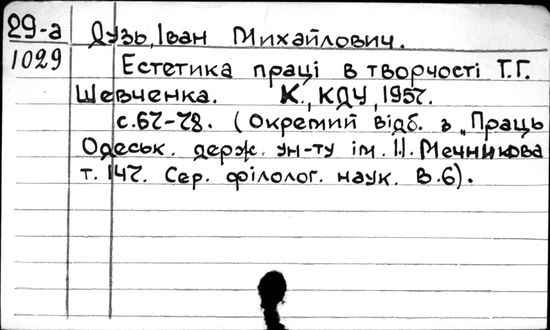 29-а Дузь, Іван Михайлович.
1029 Естетика праці в творчості Т.Г.
Шевченка. К., КДУ, 1957.
с.67-78. (Окремий відб. з „Праць
Одеськ. держ. ун-ту ім. І.І. Мечникова
т. 147. Сер. філолог. наук. В.6).